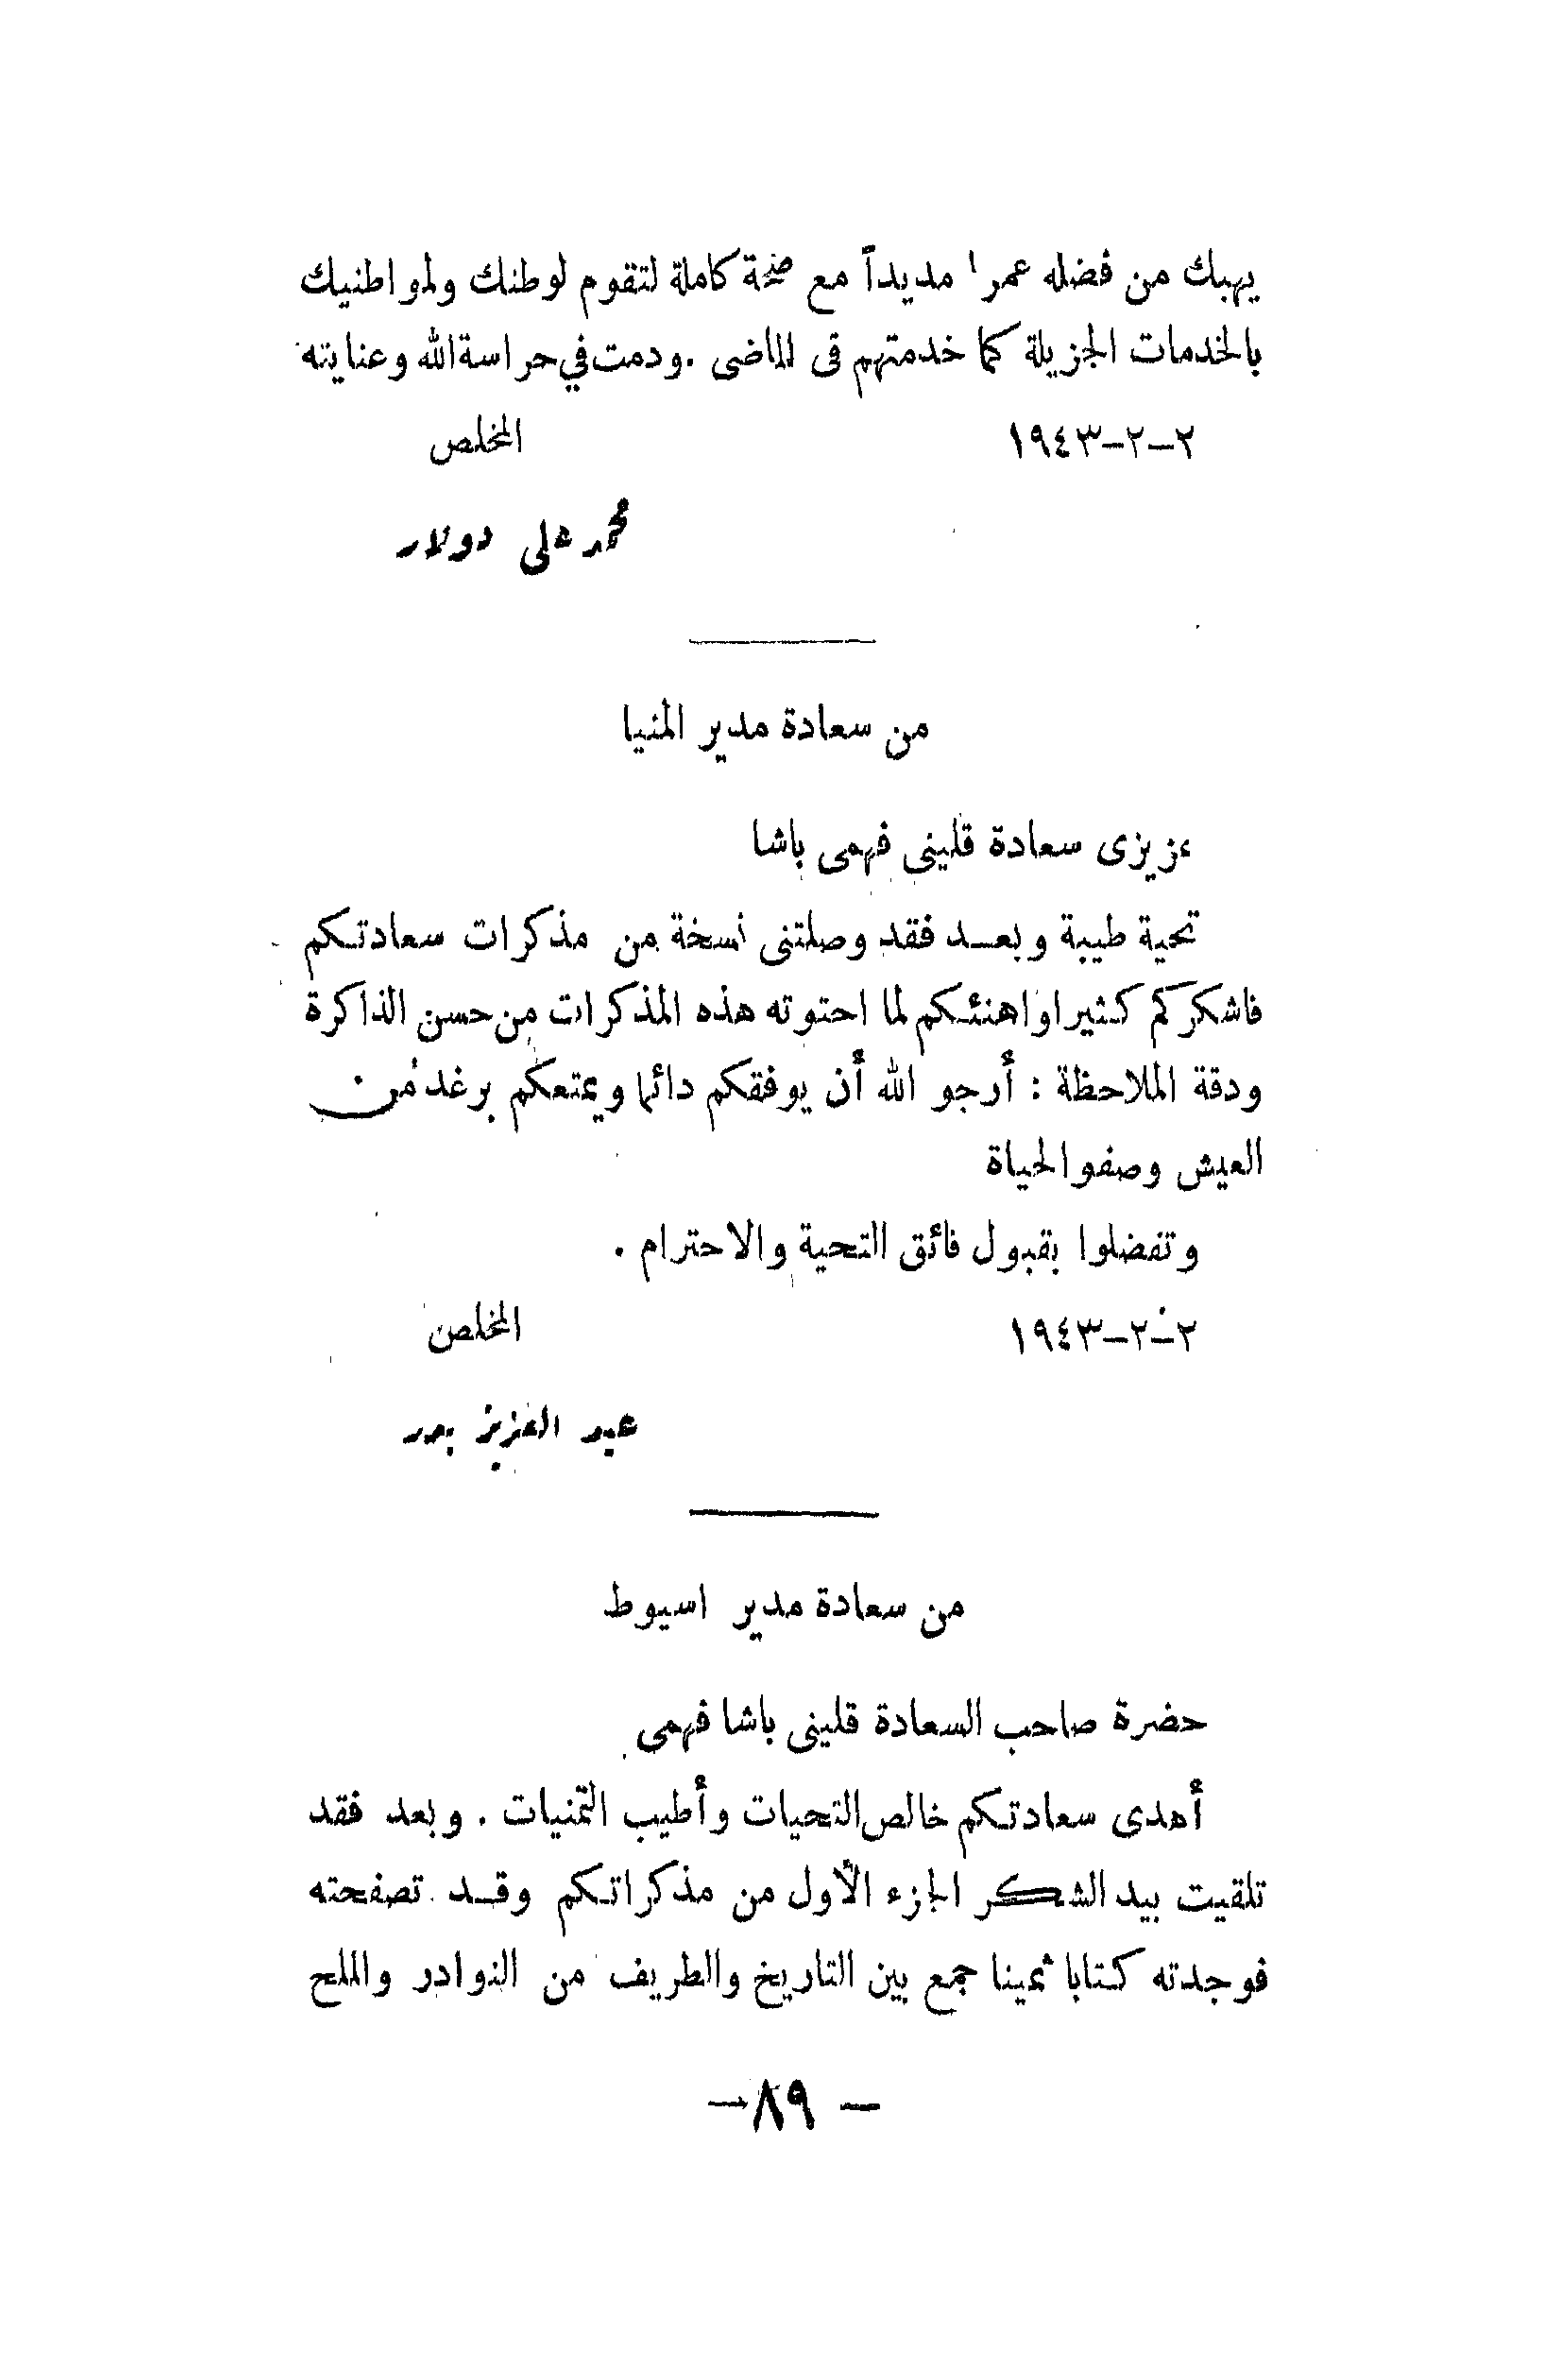 يهبك من فضله عمرا مديداً مع صحة كاملة لتقوم لوطنك ولمواطنيك
بالخدمات الجزيلة كما خدمتهم فى الماضى . ودمت في حراسة الله وعنايته
٢-٢-١٩٤٣ المخلص
محمد على دولار
من سعادة مدير المنيا
عزيزى سعادة قلينى فهمى باشا
تحية طيبة وبعد فقد وصلتنى نسخة من مذكرات سعادتكم
فاشكركم كثيرا واهنئكم لما احتوته هذه المذكرات من حسن الذاكرة
ودقة الملاحظة : أرجو الله أن يوفقكم دائما ويمتعكم برغد من
العيش وصفو الحياة
وتفضلوا بقبول فائق التحية والاحترام .
٢-٢-١٩٤٣ المخلص
عبد العزيز بدر
من سعادة مدير اسيوط
حضرة صاحب السعادة قلينى باشا فهمى
أهدى سعادتكم خالص التحيات وأطيب التمنيات . وبعد فقد
تلقيت بيد الشكر الجزء الأول من مذكراتكم وقد تصفحته
فوجدته كتابا ثمينا جمع بين التاريخ والطريف من النوادر والملح
— ٨٩ —